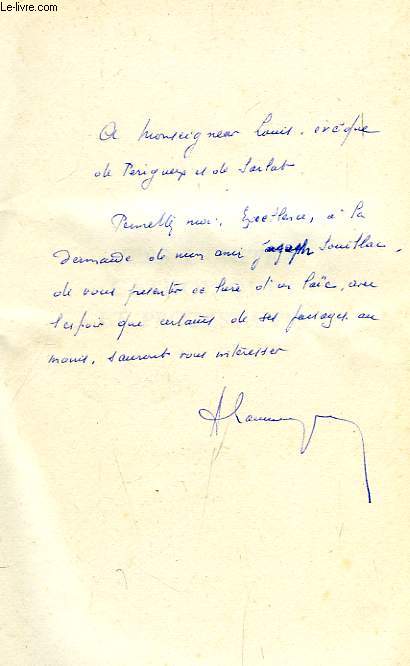 Le-livre.com
A Monseigneur Louis, évêque
de Périgueux et de Sarlat.
Permettez moi, Excellence, à la
demande de mon ami Souillac,
de vous présenter ce livre d'un laïc, avec
l'espoir que certains de ses passages au
moins, sauront vous intéresser